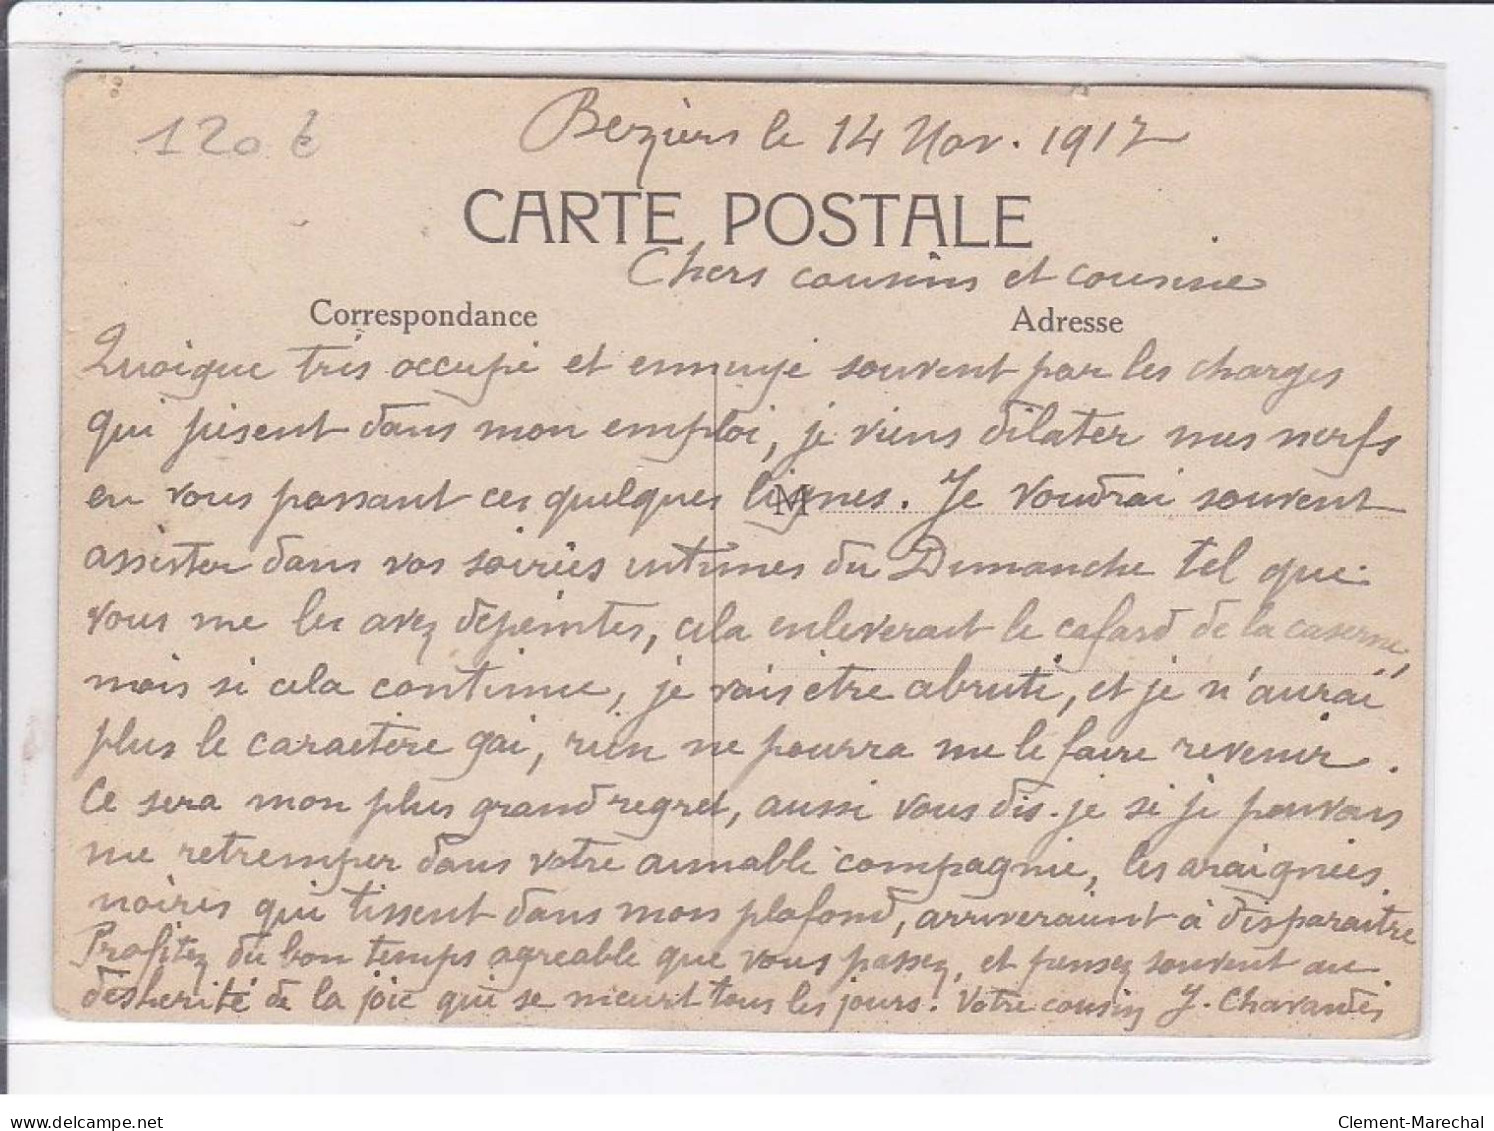 120 €
Beziers le 14 Nov. 1917
CARTE POSTALE
Chers cousins et cousine
Correspondance
Adresse
Quoique très occupé et ennuyé souvent par les charges
qui pèsent dans mon emploi, je viens dilater mes nerfs
en vous passant ces quelques lignes. Je voudrai souvent
M
assister dans vos soirées intimes du Dimanche tel que
vous me les avez dépeintes, cela enleverait le cafard de la caserne,
mais si cela continue, je vais être abruti, et je n'aurai
plus le caractère gai, rien ne pourra me le faire revenir.
Ce sera mon plus grand regret, aussi vous dis-je si je pouvais
me retremper dans votre aimable compagnie, les araignées
noires qui tissent dans mon plafond, arriveraient à disparaitre
Profitez du bon temps agreable que vous passez, et pensez souvent au
desherité de la joie qui se meurt tous les jours. Votre cousin J. Chavardès
delcampe.net
Clement-Marechal